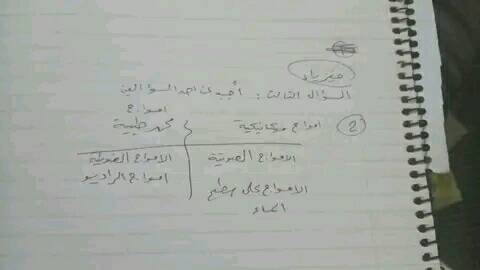 فيزياء
السؤال الثالث : أجب عن احد السؤالين
2 امواج ميكانيكية / امواج كهرطيسية
الامواج الصوتية / الامواج الضوئية
الامواج على سطح الماء / امواج الراديو